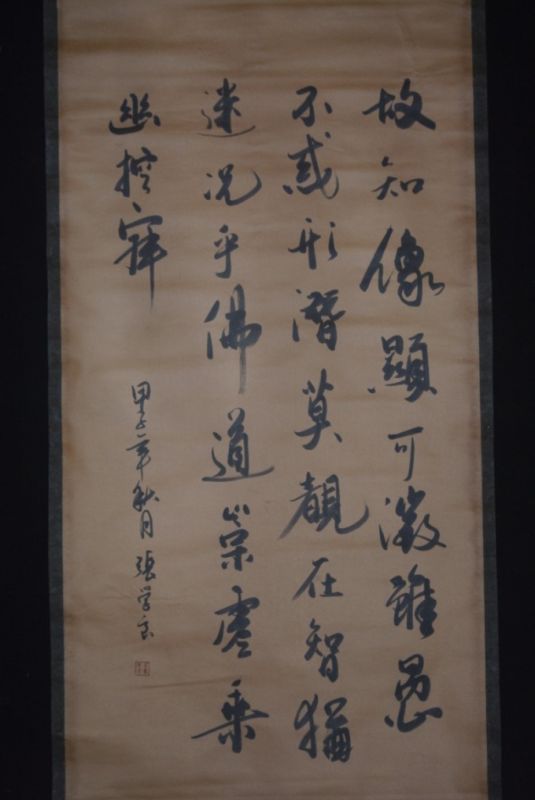 故知像顯可徵雖愚
不惑形潛莫覩在智猶
迷況乎佛道崇虛乘
幽控寂
甲子年秋月張学良